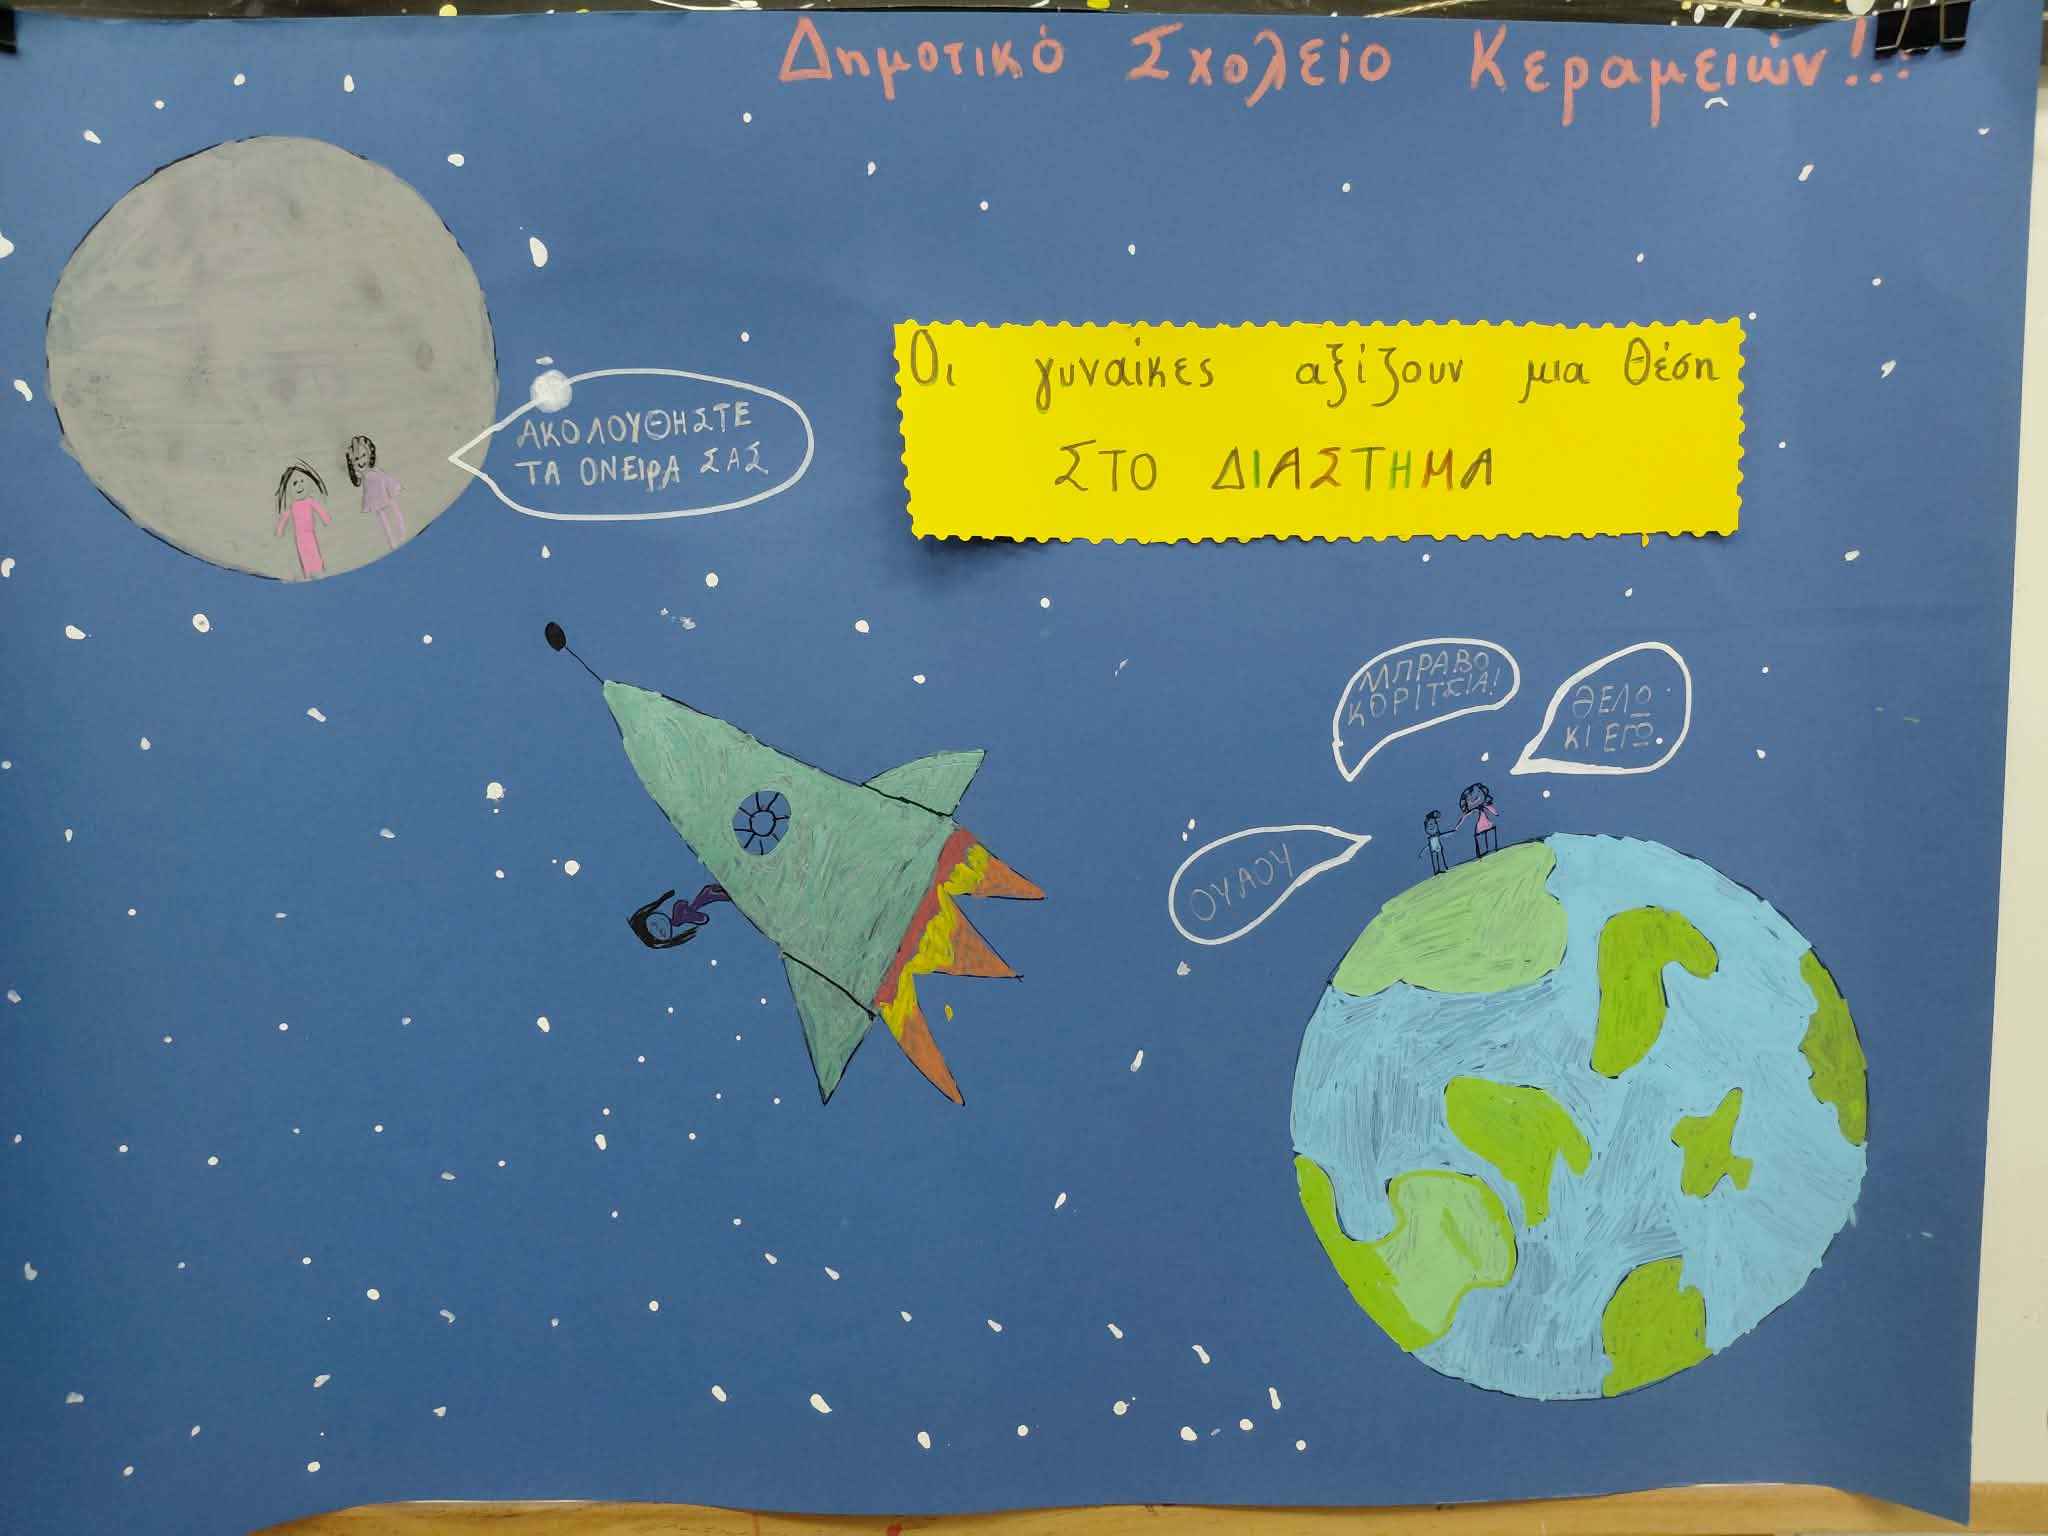 Δημοτικό Σχολείο Κεραμειών!..
Οι γυναίκες αξίζουν μια θέση
ΣΤΟ ΔΙΑΣΤΗΜΑ
ΑΚΟΛΟΥΘΗΣΤΕ
ΤΑ ΟΝΕΙΡΑ ΣΑΣ
ΜΠΡΑΒΟ
ΚΟΡΙΤΣΙΑ!
ΘΕΛΩ
ΚΙ ΕΓΩ.
ΟΥΑΟΥ